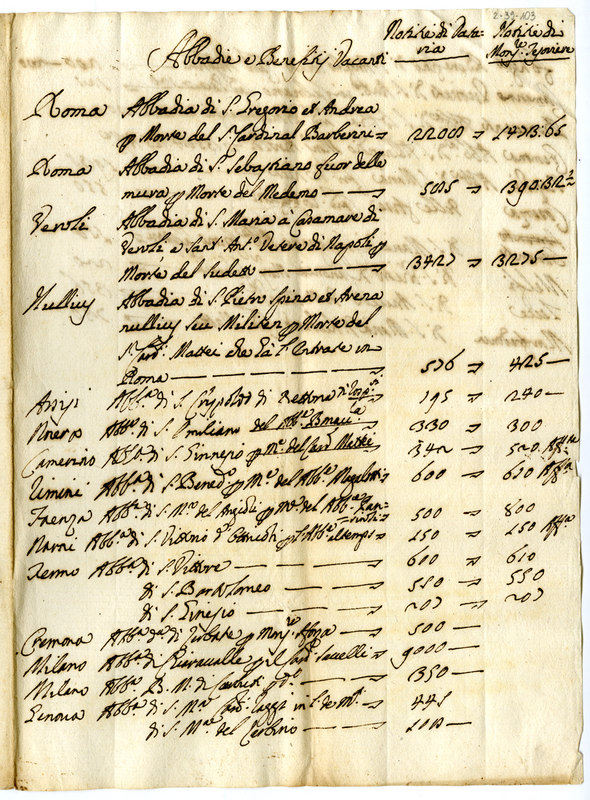 2-39-103
Abbadie e Benefitij Vacanti
Notitie di Data=
ria
Notitie di
Monsr. Tesoriere
Roma Abbadia di S. Gregorio et Andrea
p Morte del Sr Cardinal Barberini = 2200 = 1473:65
Roma Abbadia di S. Sebastiano fuor delle
mura p Morte del Medemo — 505 = 390:
Veroli Abbadia di S. Maria à Casamare di
Veroli, e Sant' Anto. Vetere di Napoli p
Morte del sudetto — 3427 = 3275 —
Nullius Abbadia di S. Pietro Spina et Arena
nullius seu Militen p Morte del
Sr Card. Mattei che dà l'Entrate in
Roma — 576 = 425 —
Asisi Abba. di S. di Bettona 195 = 240 —
Nocera Abba. di S. Emiliano del Abbe. 330 = 300
Camerino Abba di S. Ginnesio p Me. del Card Mattei 342 = 520
Rimini Abba. di S. Bened.o p Me. del Abbe. 600 = 650
Faenza Abba. di S. Ma. del Angioli p Me. del Abbe. 500 = 800
Narni Abba. di S. 250 = 250
Fermo Abba. di S. Vittore — 600 = 610
di S. Bartolomeo — 550 = 550
di S. Ginesio — 207 = 207
Cremona Abba. p Monsre. Sforza — 500 —
Milano Abba. di Chiaravalle p il Card. Savelli = 9000 —
Milano Abba. B. M. di 1350 —
Genova Abba. di S. Ma. 445
di S. Ma. del —